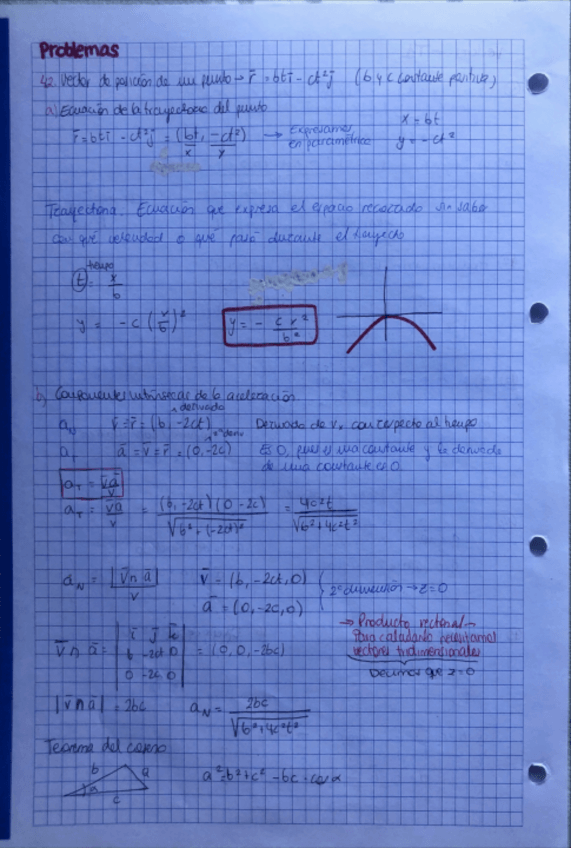 Problemas
42. Vector de posición de un punto → r̄ = btī - ct²j̄ (b y c constante positiva)
a) Ecuación de la trayectoria del punto
r̄ = btī - ct²j̄ = (bt, -ct²) → Expresamos en paramétrica x = bt
x y y = -ct²
Trayectoria. Ecuación que expresa el espacio recorrido sin saber
con qué velocidad o qué pasó durante el trayecto
tiempo
t = x/b
y = -c (x/b)² y = - c x²/b²
b) Componentes intrínsecas de la aceleración
derivada
a_N v̄ = ṙ = (b, -2ct) Derivada de vₓ con respecto al tiempo
a_T ā = v̄ = r̄ = (0, -2c) Es 0, pues es una constante y la derivada
de una constante es 0.
a_T = v̄ā/v
a_T = v̄ā/v = (b, -2ct)(0 -2c)/√(b² + (-2ct)²) = 4c²t/√(b² + 4c²t²)
a_N = |v̄ ∧ ā|/v v̄ = (b, -2ct, 0)
ā = (0, -2c, 0) 2ª dimensión → z = 0
→ Producto vectorial →
Para calcularlo necesitamos
vectores tridimensionales
Decimos que z = 0
v̄ ∧ ā = | ī j̄ k̄
b -2ct 0
0 -2c 0 | = (0, 0, -2bc)
|v̄ ∧ ā| = 2bc a_N = 2bc/√(b² + 4c²t²)
Teorema del coseno
b a
α
c
a² = b² + c² - bc · cos α